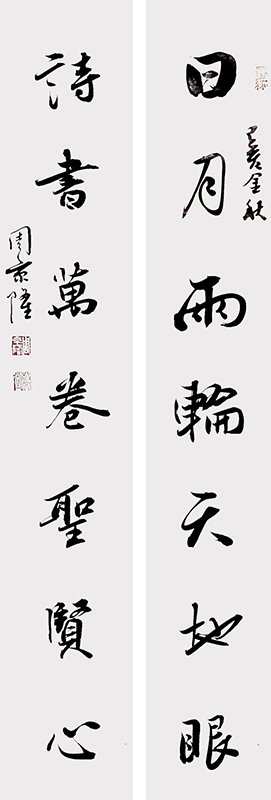 日月兩輪天地眼
金秋
詩書萬卷聖賢心
周京隆